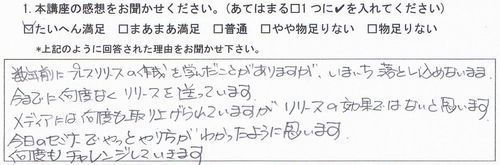 1. 本講座の感想をお聞かせください。(あてはまる□1つに✔を入れてください)
☑たいへん満足 □まあまあ満足 □普通 □やや物足りない □物足りない
*上記のように回答された理由をお聞かせ下さい。
数年前にプレスリリースの作成を学んだことがありますが、いまいち落とし込めないまま、
今までに何度なくリリースを送っています。
メディアには何度も取り上げられていますが リリースの効果ではないと思います。
今日のセミナーでやっとやり方がわかったように思います。
何度もチャレンジしていきます